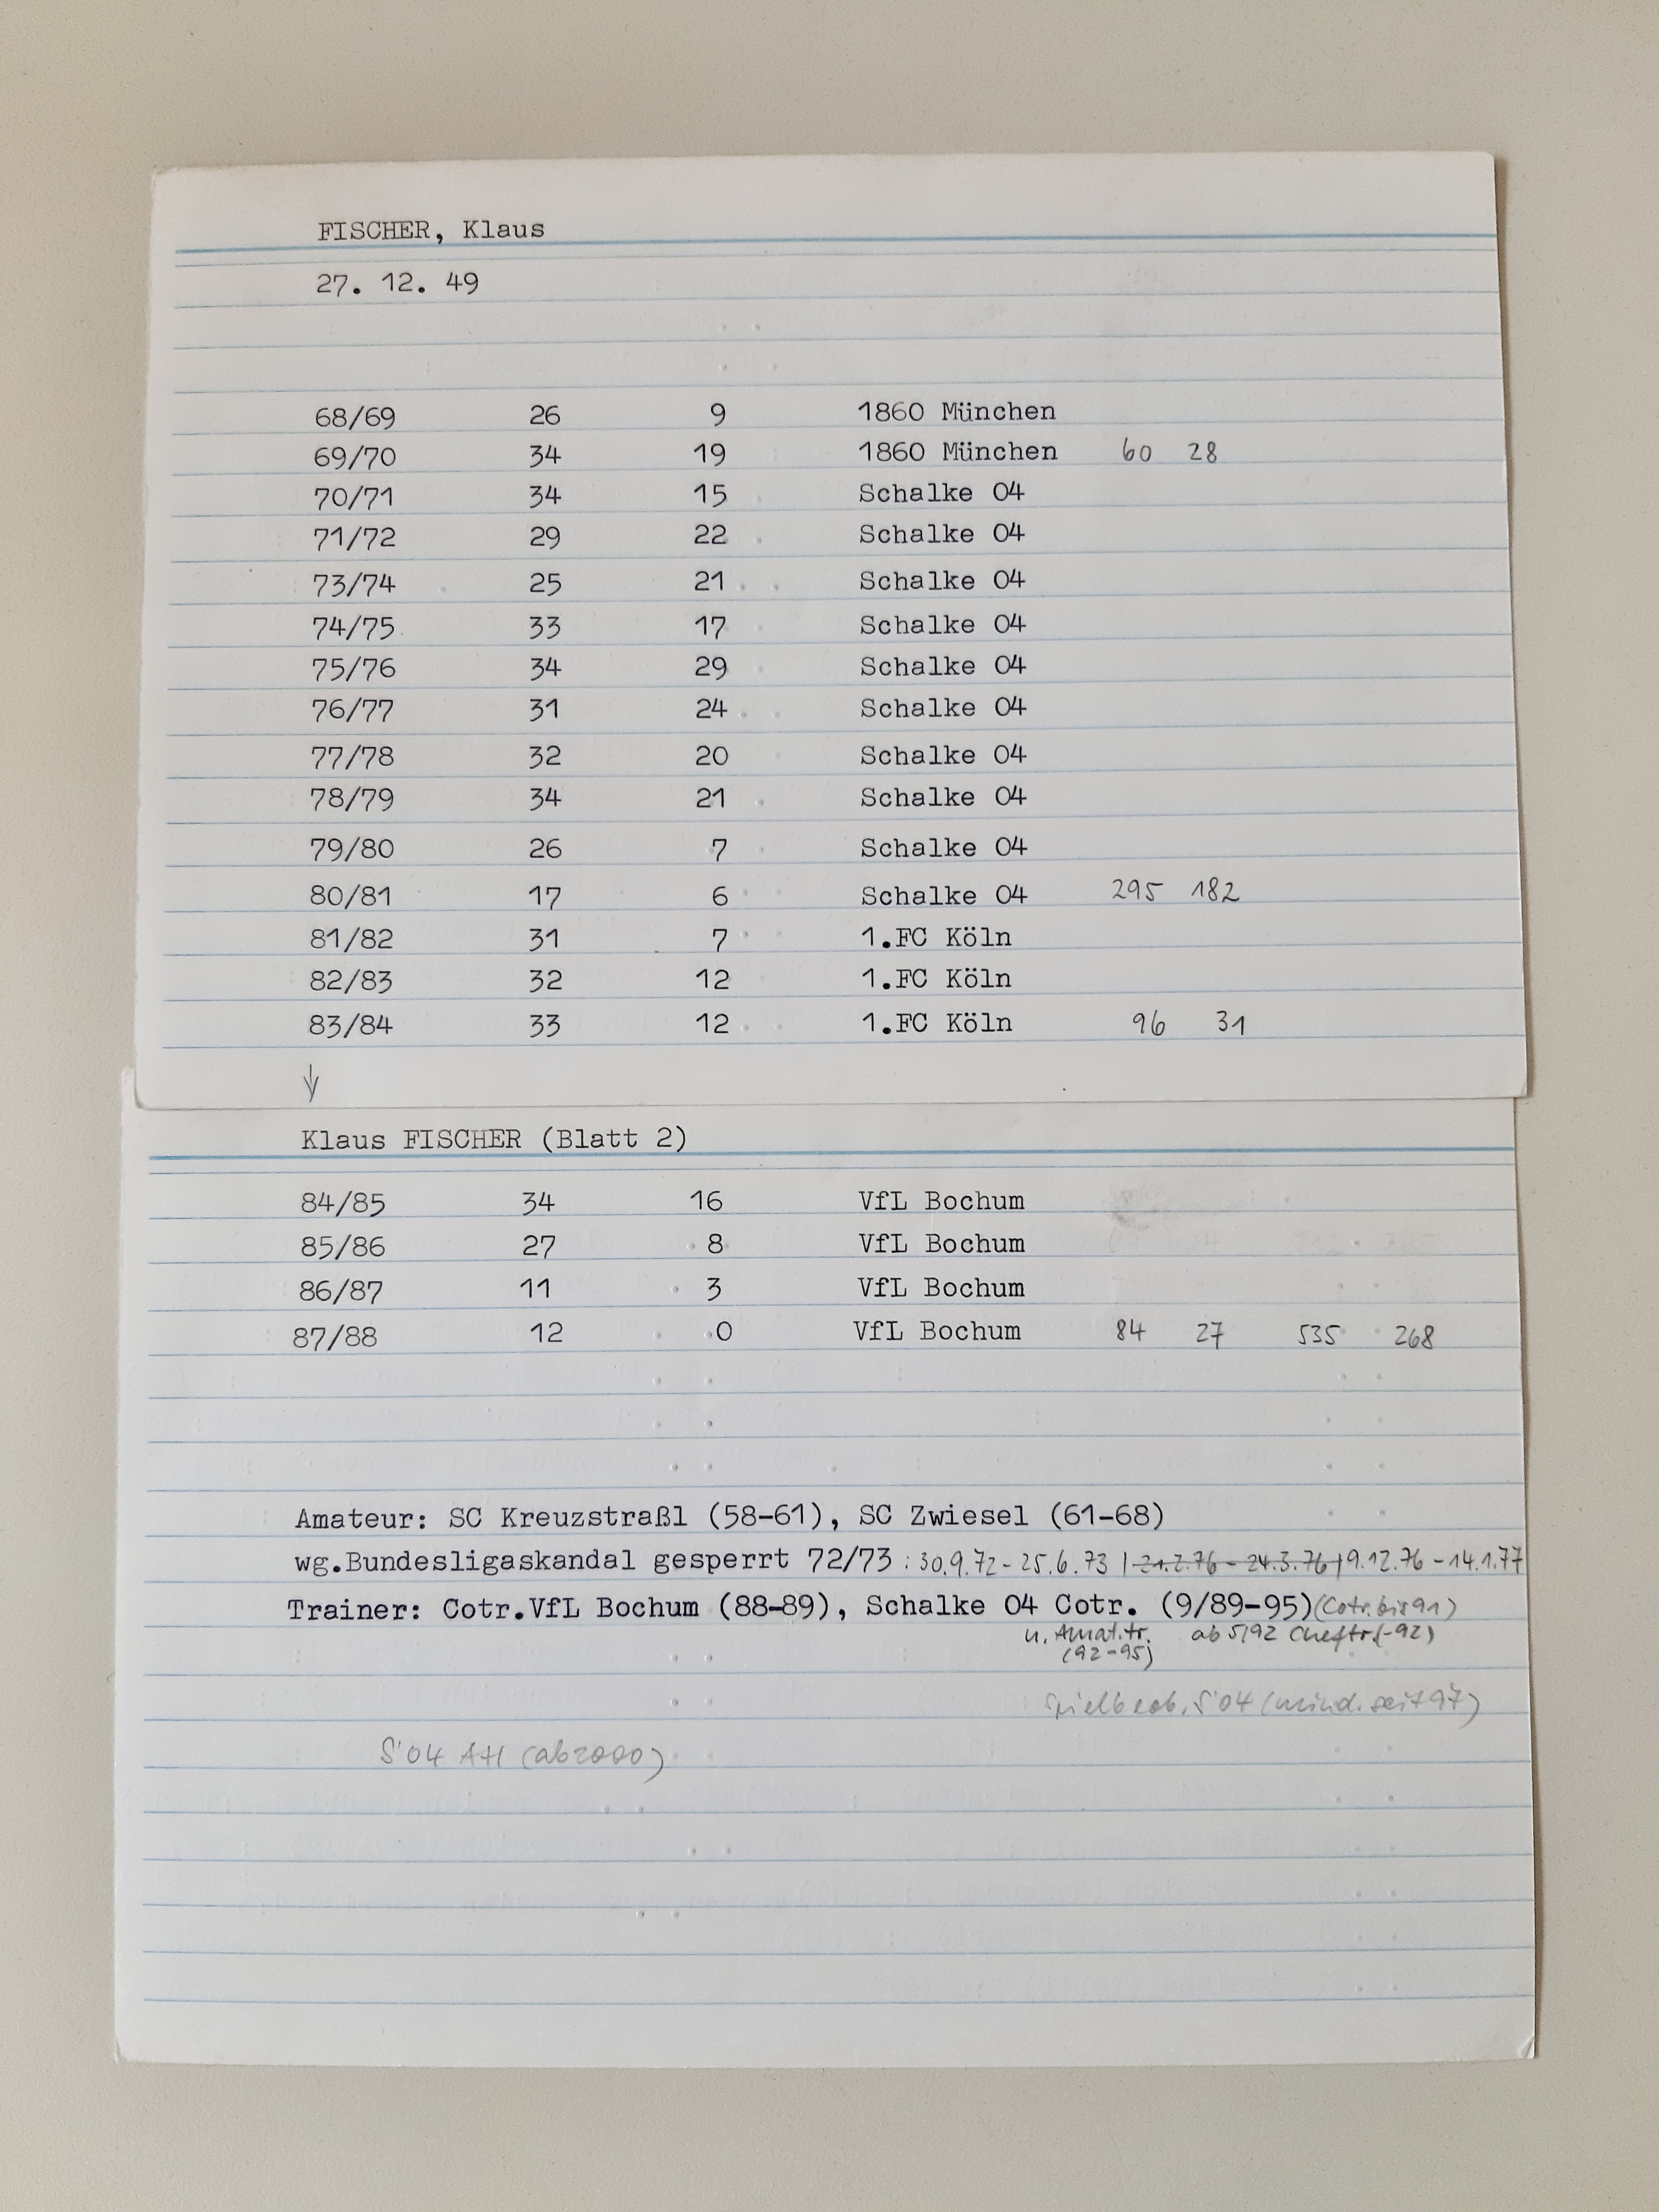 FISCHER, Klaus
27. 12. 49
68/69 26 9 1860 München
69/70 34 19 1860 München 60 28
70/71 34 15 Schalke 04
71/72 29 22 Schalke 04
73/74 25 21 Schalke 04
74/75 33 17 Schalke 04
75/76 34 29 Schalke 04
76/77 31 24 Schalke 04
77/78 32 20 Schalke 04
78/79 34 21 Schalke 04
79/80 26 7 Schalke 04
80/81 17 6 Schalke 04 295 182
81/82 31 7 1.FC Köln
82/83 32 12 1.FC Köln
83/84 33 12 1.FC Köln 96 31
Klaus FISCHER (Blatt 2)
84/85 34 16 VfL Bochum
85/86 27 8 VfL Bochum
86/87 11 3 VfL Bochum
87/88 12 0 VfL Bochum 84 27 535 268
Amateur: SC Kreuzstraßl (58-61), SC Zwiesel (61-68)
wg.Bundesligaskandal gesperrt 72/73 : 30.9.72 - 25.6.73 | 21.2.76 - 24.3.76 | 9.12.76 - 14.1.77
Trainer: Cotr.VfL Bochum (88-89), Schalke 04 Cotr. (9/89-95) (Cotr. bis 91)
u. Amat.tr. ab 5/92 Cheftr. (-92)
(92-95)
Spielbeob. S'04 (mind. seit 97)
S'04 AH (ab 2000)